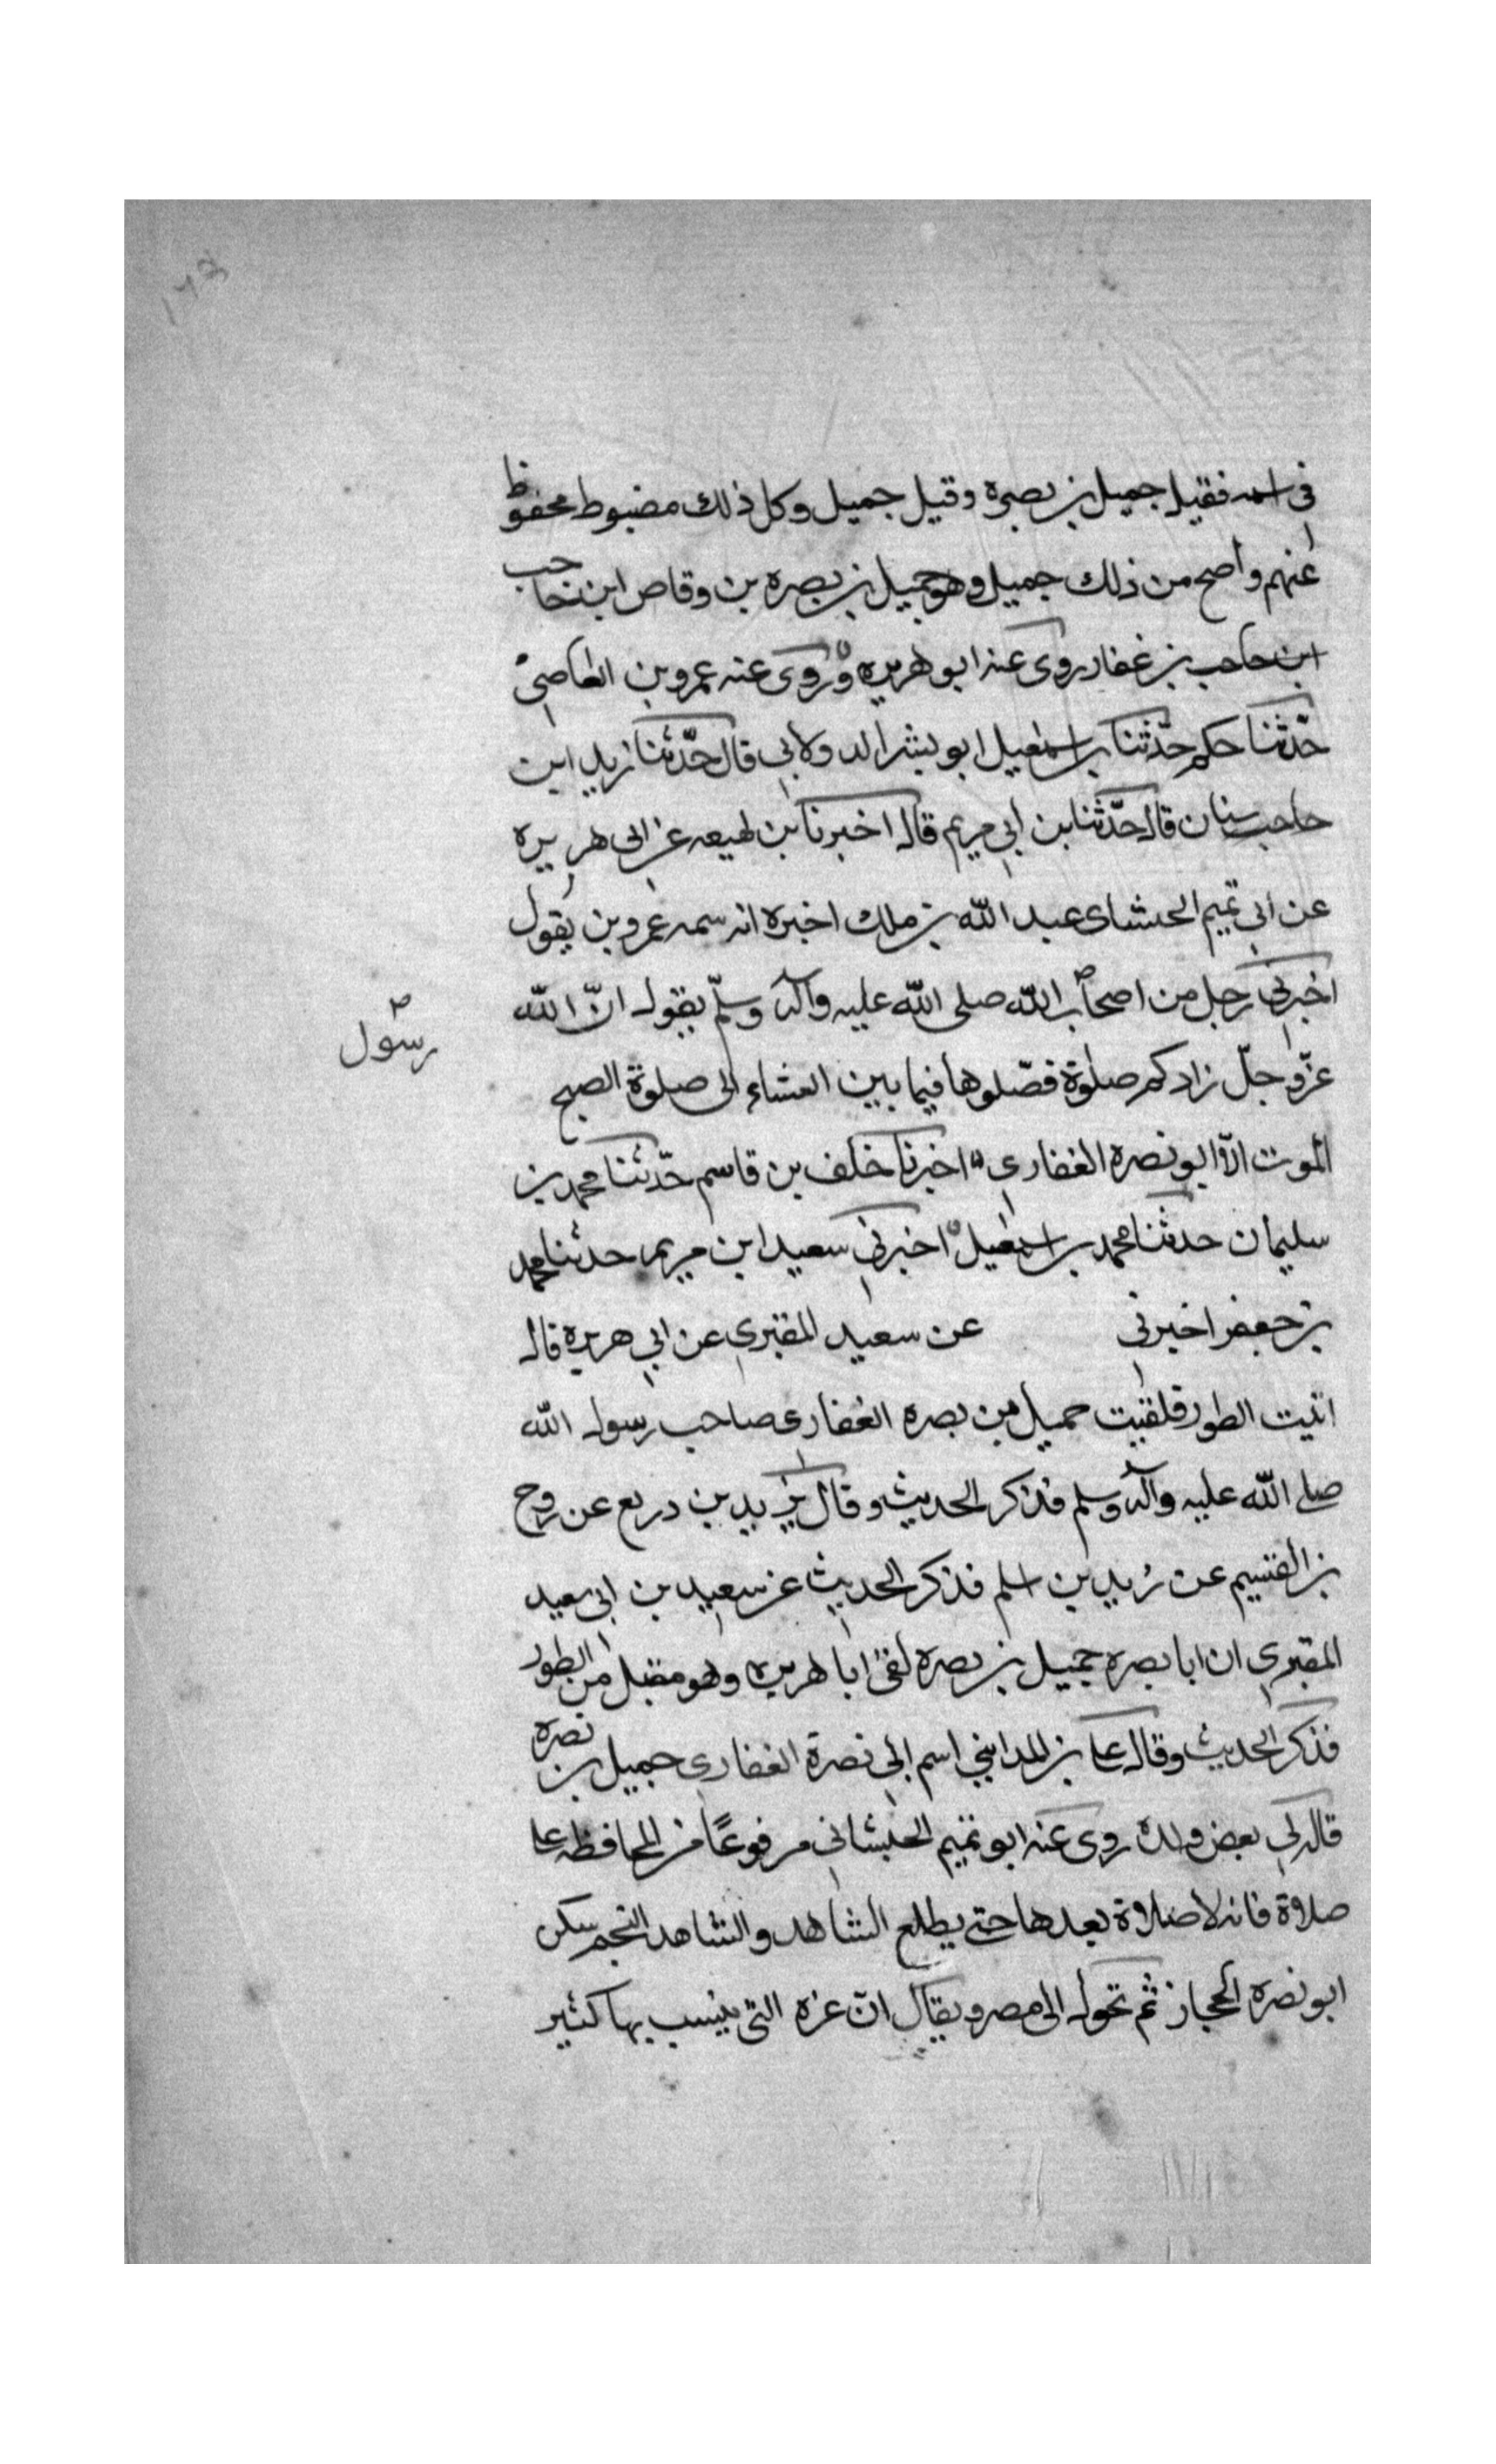 ١٧٤
فى اسمه فقيل جميل بن بصرة وقيل جميل وكل ذلك مضبوط محفوظ
عنهم واصح من ذلك جميل وهو جميل بن بصره بن وقاص ابن حاجب
ابن حاجب بن غفار روى عنه ابو هريره وروى عنه عمرو بن العاصى
حدّثنا حكم حدّثنا بن اسمعيل ابو بشر الدولابى قال حدّثنا زيد ابن
حاجب سنان قال حدّثنا بن ابى مريم قال اخبرنا بن لهيعه عن ابى هريره
عن ابى تميم الحشاى عبد الله بن ملك اخبره انه سمه عمرو بن يقول
اخبرنى رجل من اصحاب الله صلى الله عليه وآله وسلّم يقول انّ الله
رسول
عزّ وجلّ زادكم صلوة فصّلوها فيما بين العشاء الى صلوة الصبح
الموت الّا ابو نصره الغفارى اخبرنا خلف بن قاسم حدّثنا محمد بن
سليمان حدثنا محمد بن اسمعيل اخبرنى سعيد ابن مريم حدثنا محمد
بن جعفر اخبرنى عن سعيد المقبرى عن ابى هريرة قال
اتيت الطور فلقيت حميل بن بصره الغفارى صاحب رسول الله
صلى الله عليه وآله وسلم فذكر الحديث وقال يزيد بن دريع عن روح
بن القسيم عن زيد بن اسلم فذكر الحديث عن سعيد بن ابى سعيد
المقبرى ان ابا بصره جميل بن بصره لقى ابا هريره وهو مقبل من الطور
فذكر الحديث وقال على بن المداينى اسم ابى نصرة الغفارى جميل بن نصره
قال لى بعض ولده روى عنه ابو تميم الحبشانى مرفوعًا من المحافظه على
صلاة فانه لا صلاة بعدها حتى يطلع الشاهد والشاهد النجم سكن
ابو نصره الحجاز ثم تحول الى مصر ويقال انّ عزه التى ينسب بها كثير